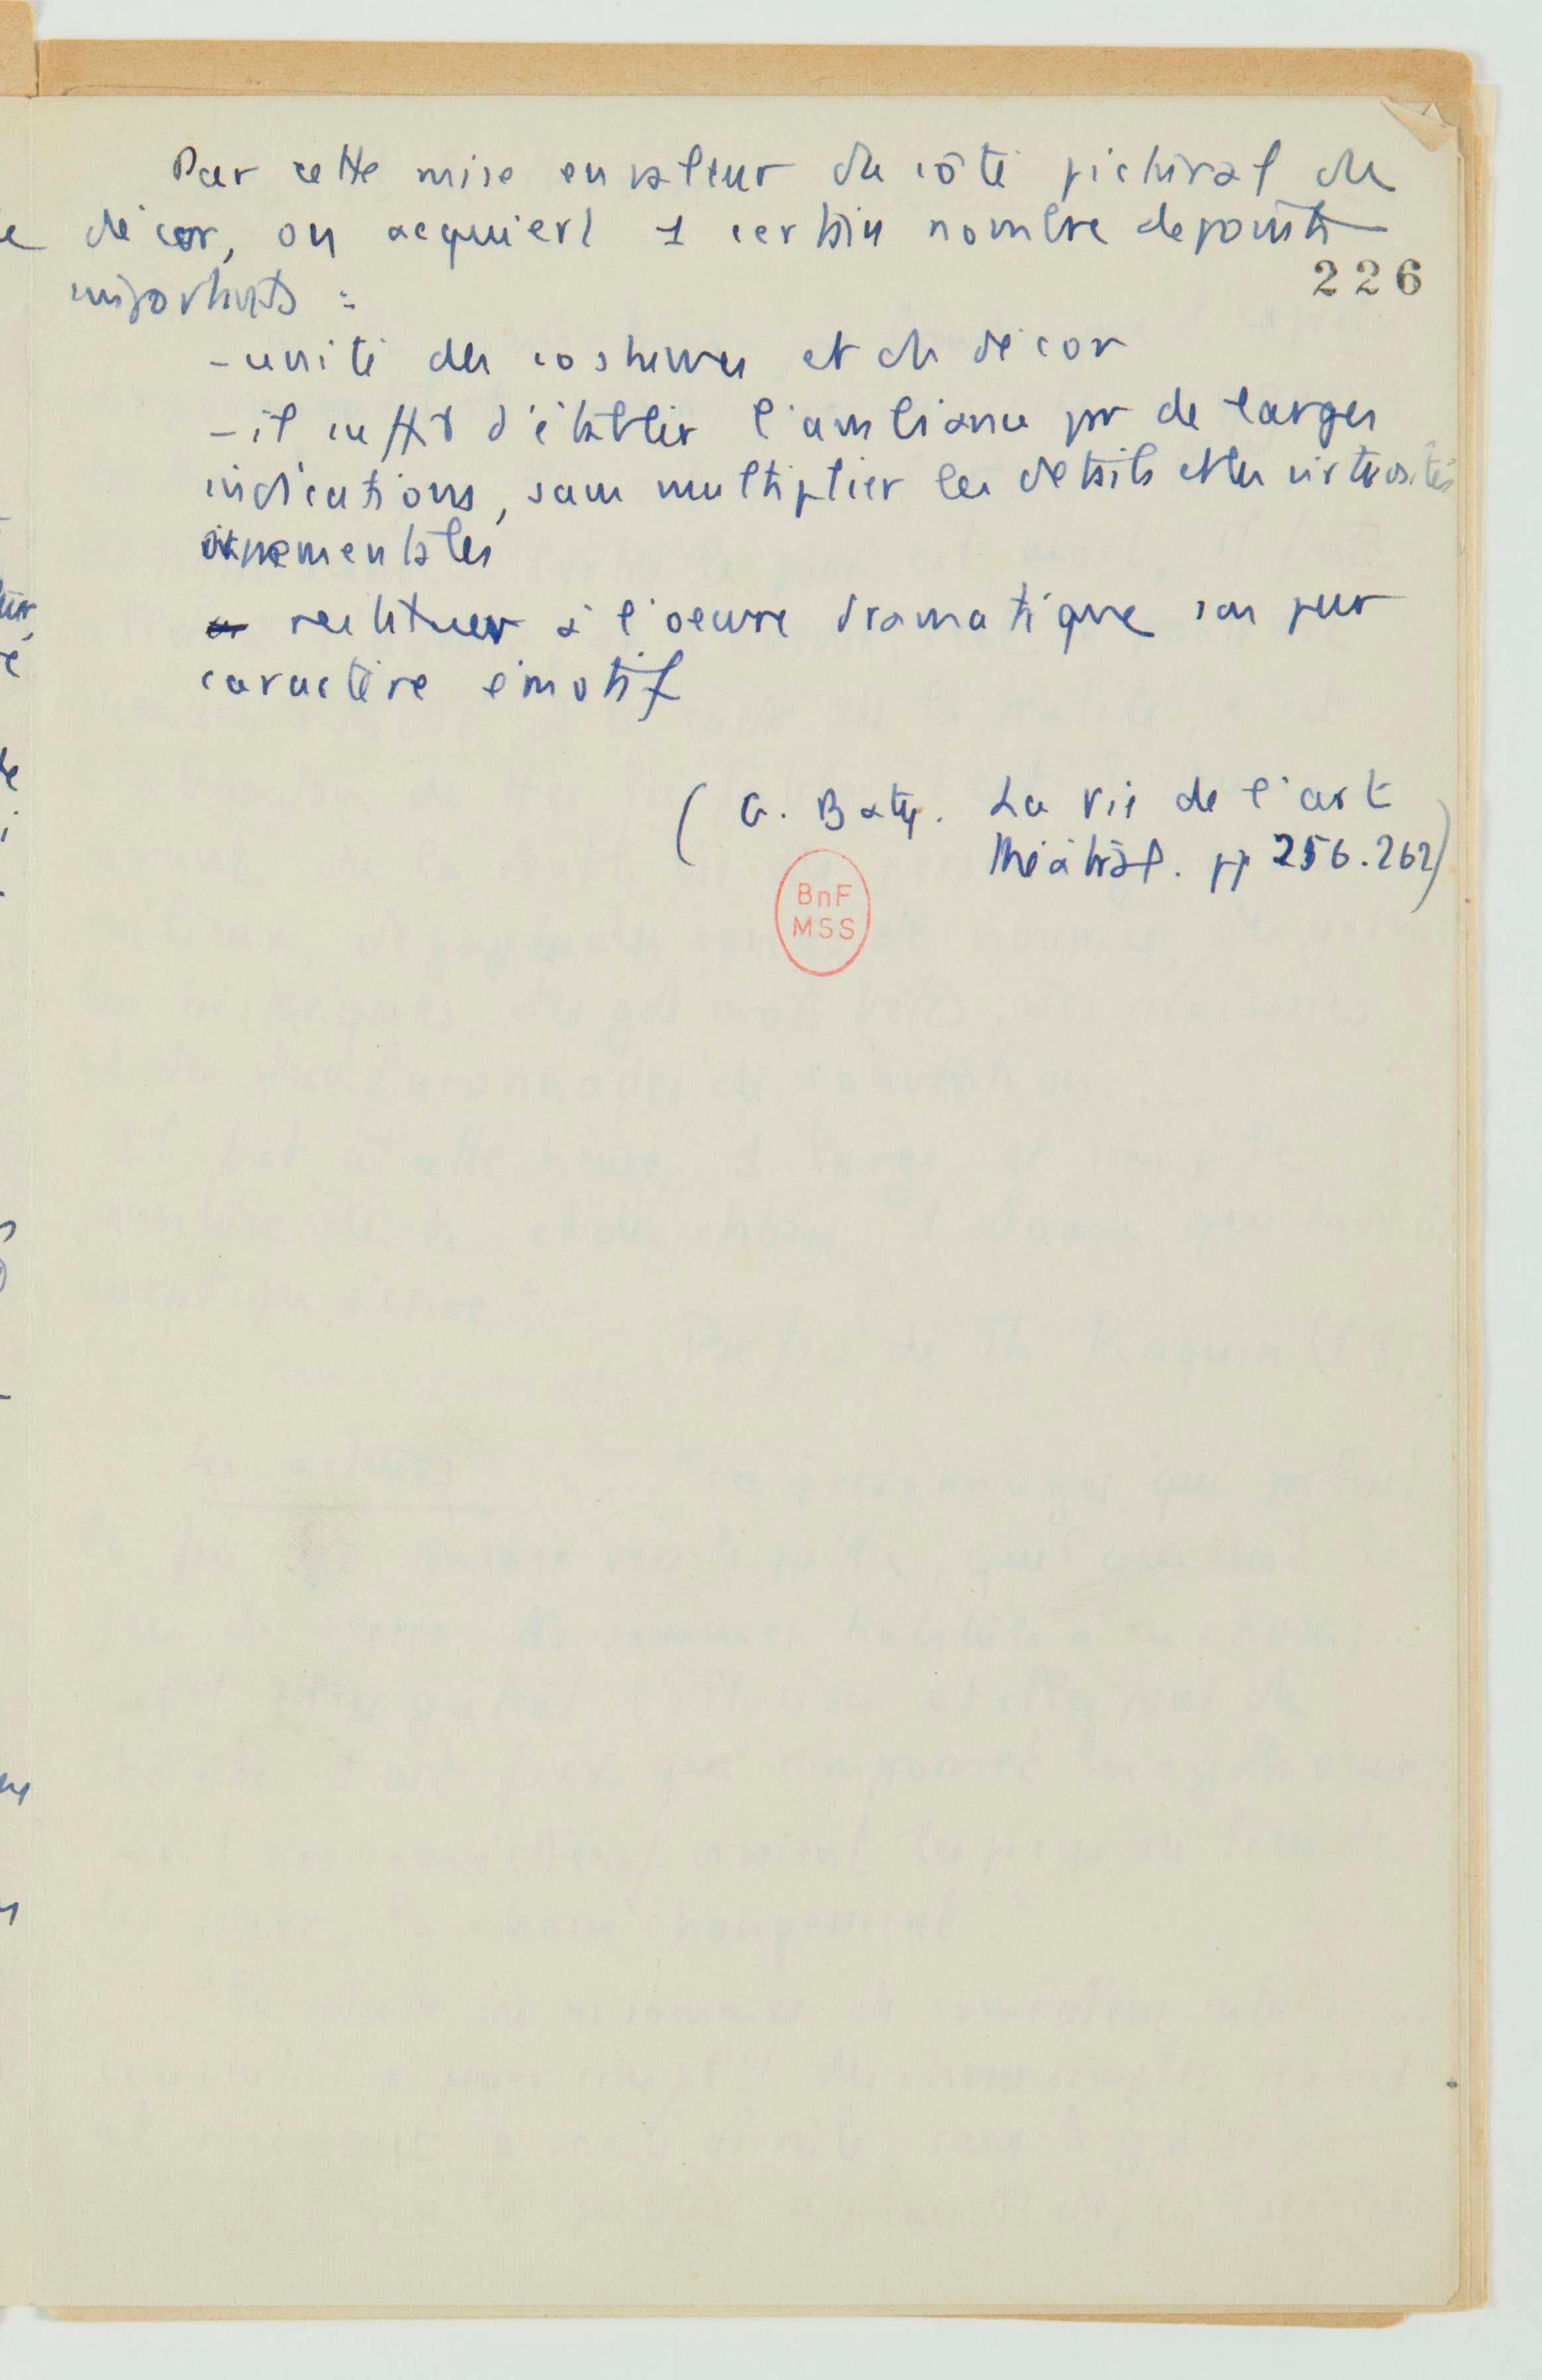 Par cette mise en valeur du côté pictural du
décor, on acquiert 1 certain nombre de points
226
importants :
- unité des costumes et du décor
- il suffit d'établir l'ambiance par de larges
indications, sans multiplier les détails et les virtuosités
ornementales
- restituer à l'oeuvre dramatique son pur
caractère émotif
(G. Baty. La vie de l'art
théâtral. pp 256.262)
BnF
MSS